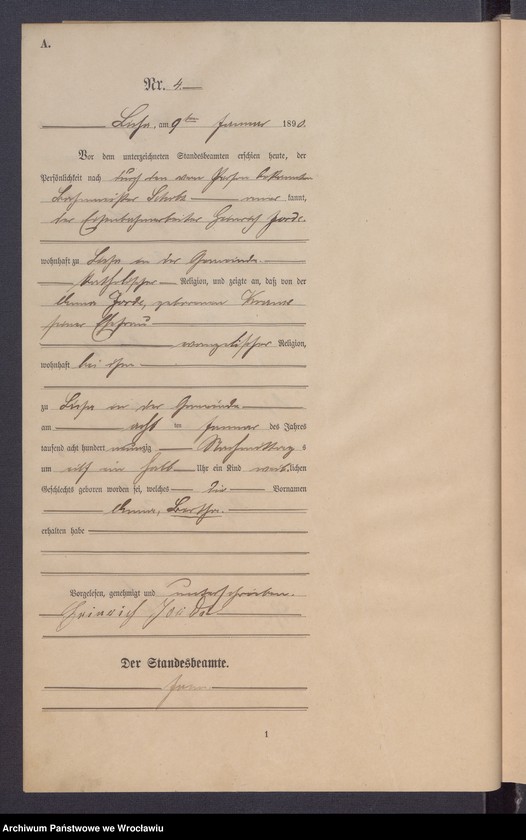 A.
Nr. 4.
am 9ten Januar 1890.
Vor dem unterzeichneten Standesbeamten erschien heute, der
Persönlichkeit nach durch den von Person bekannten
Bahnmeister Scholz kannt,
der Eisenbahnarbeiter Heinrich
wohnhaft zu in der Gemeinde
katholischer Religion, und zeigte an, daß von der
Anna geborenen
seiner Ehefrau
evangelischer Religion,
wohnhaft bei ihm
zu in der Gemeinde
am acht ten Januar des Jahres
tausend acht hundert neunzig Nachmittags
um elf ein halb Uhr ein Kind weiblichen
Geschlechts geboren worden sei, welches die Vornamen
Anna, Bertha.
erhalten habe
Vorgelesen, genehmigt und unterschrieben.
Heinrich
Der Standesbeamte.
1
Archiwum Państwowe we Wrocławiu